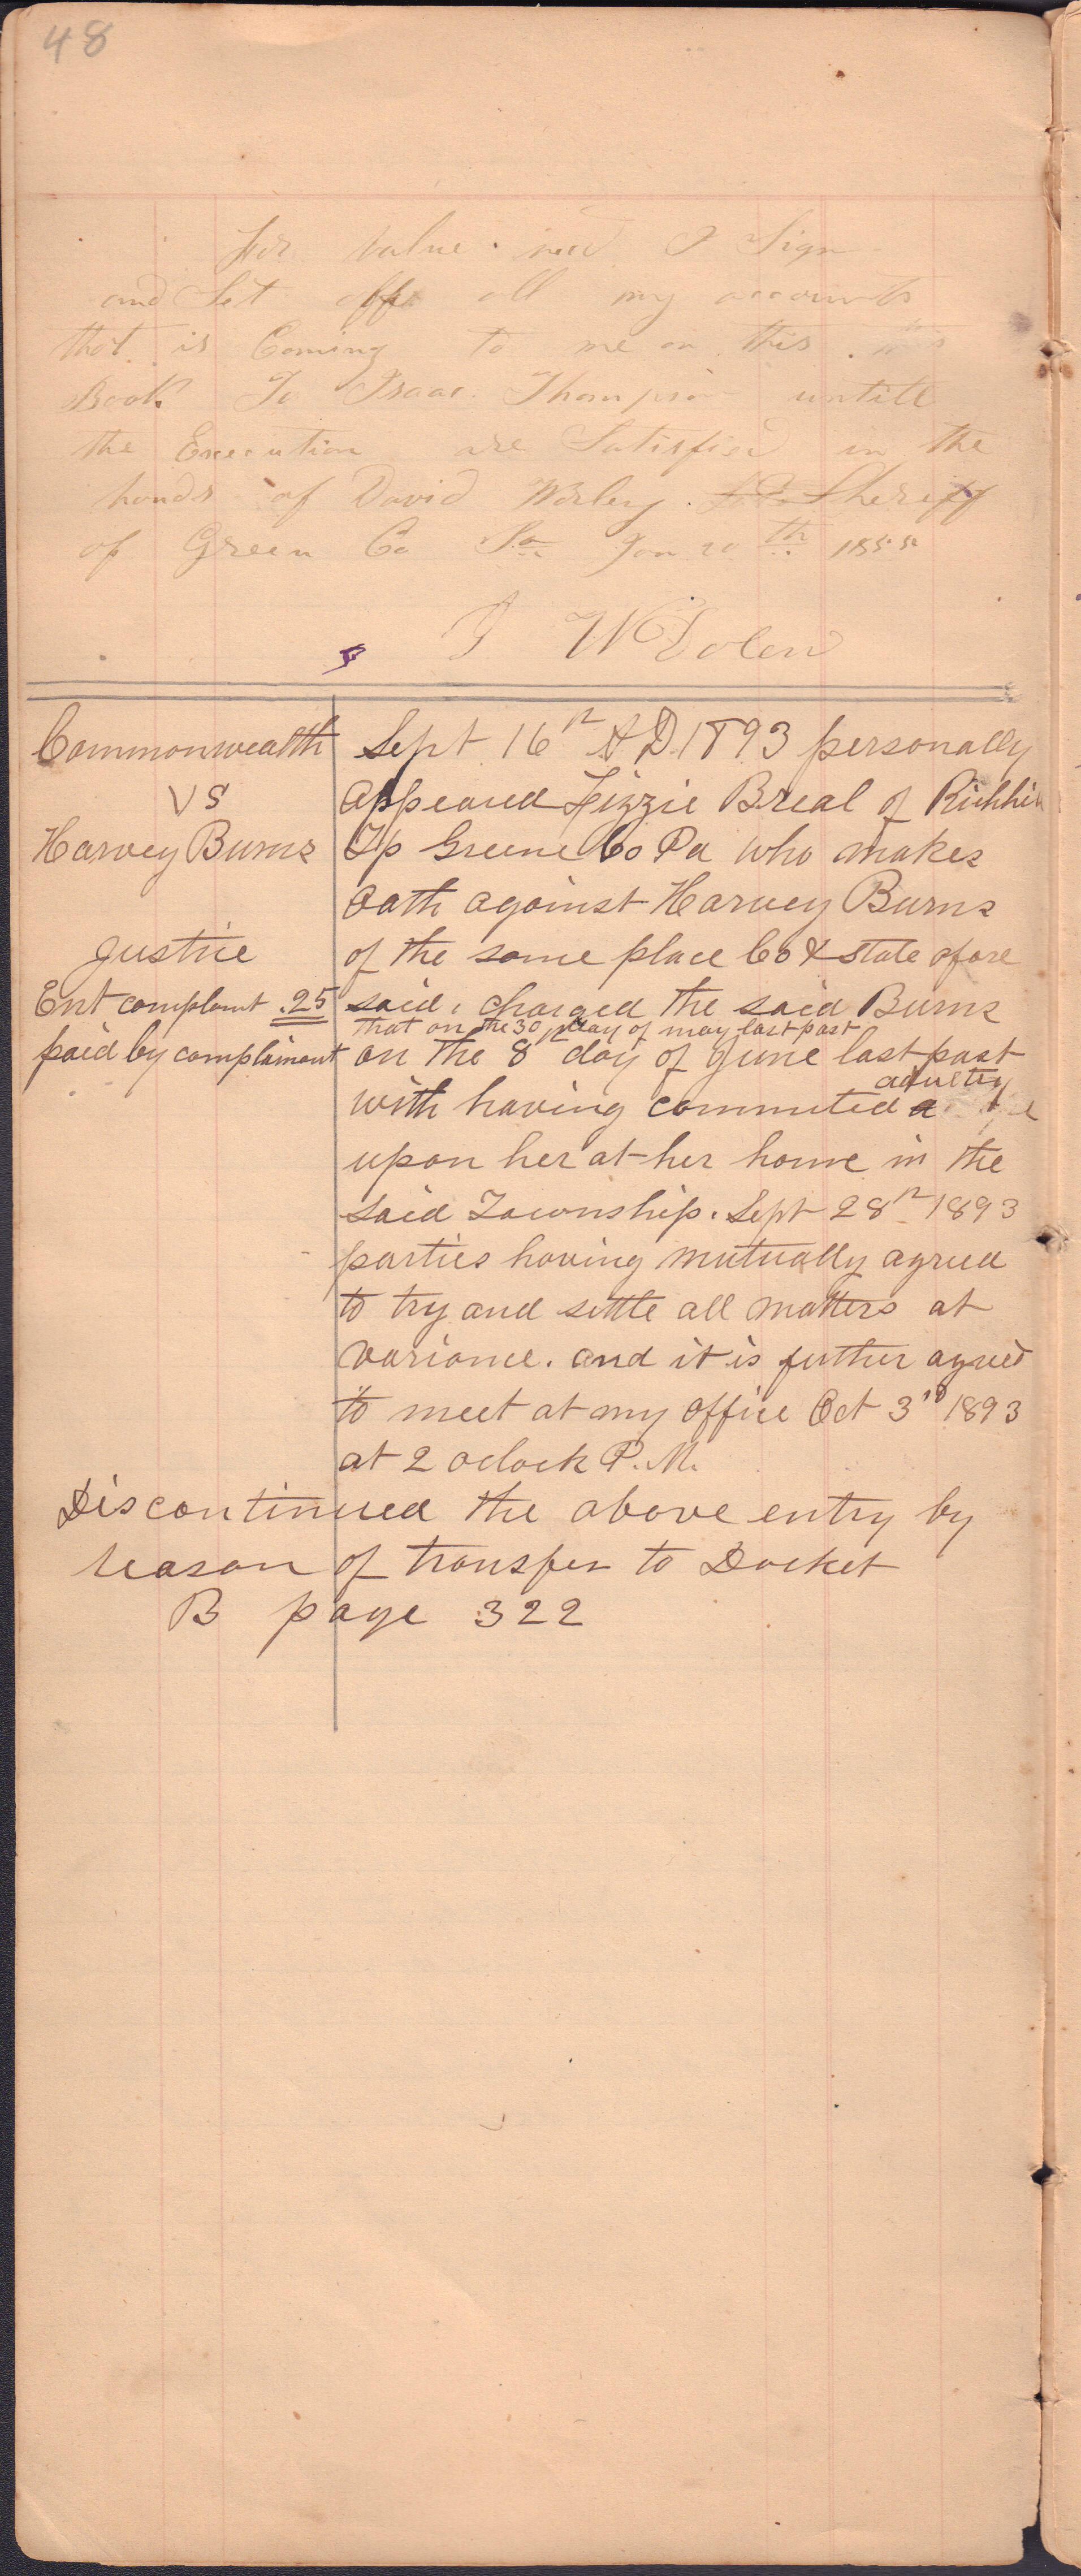 48
for value recd I Sign
and Set off all my accounts
that is Coming to me on this
Book To Isaac Thompson untill
the Execution are Satisfied in the
hands of David Worley Sheriff
of Green Co Pa Jan 20th 1855
J W Dolen
Commonwealth
VS
Harvey Burns
Justice
Ent complaint .25
paid by complainant
Sept 16th A D. 1893 personally
appeared Lizzie Breal of Richhill
Tp Greene Co Pa who makes
oath against Harvey Burns
of the same place Co & state afore
said, charged the said Burns
that on the 30th day of may last past
on the 8th day of June last past
adultry
with having commited a
upon her at her home in the
said Township. Sept 28th 1893
parties having mutually agreed
to try and settle all matters at
variance. and it is further agreed
to meet at my office Oct 3rd 1893
at 2 oclock P.M.
Discontinued the above entry by
reason of transfer to Docket
B page 322